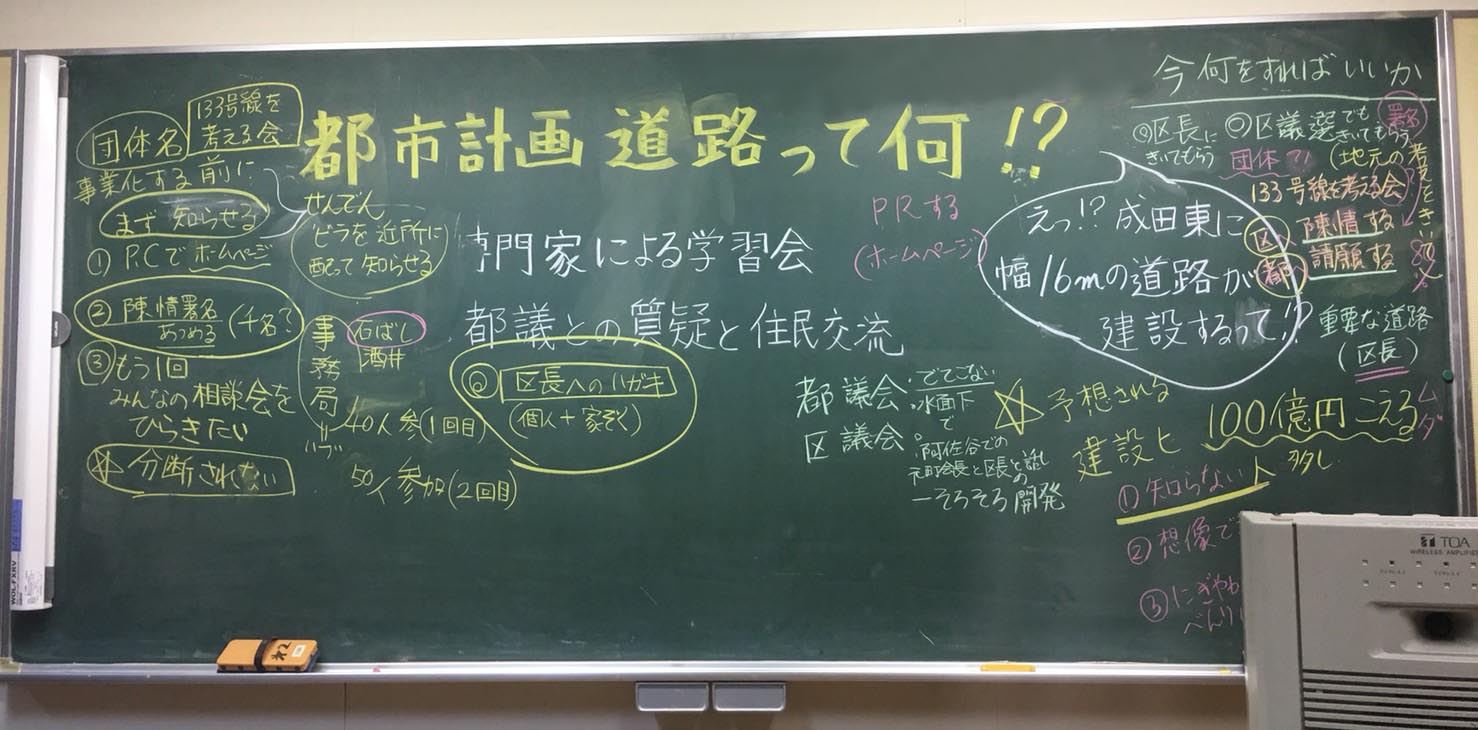 団体名
133号線を
考える会
事業化する前に
まず知らせる
① P.Cでホームページ
② 陳情署名
あつめる
(千名?
③ もう1回
みんなの相談会を
ひらきたい
☆分断されない
都市計画道路って何!?
せんでん
ビラを近所に
配って知らせる
専門家による学習会
都議との質疑と住民交流
事務局
石ばし
酒井
40人参(1回目)
50人参加(2回目)
◎区長へのハガキ
(個人+家ぞく)
PRする
(ホームページ)
えっ!?成田東に
幅16mの道路が
建設するって!?
今何をすればいいか
◎区長に
きいてもらう
◎区議選でも
きいてもらう
署名
団体で!
(地元の考えをきく
133号線を考える会
区へ 陳情する
都へ 請願する
重要な道路
(区長)
都議会
区議会
・でてこない
・水面下
で
・阿佐谷での
元町会長と区長と話し
の
ーそろそろ開発
☆予想される
建設ヒ 100億円こえる
ムダ
① 知らない人 多し
② 想像で
③ にぎやか
べんり
TOA
WIRELESS AMPLIFIER